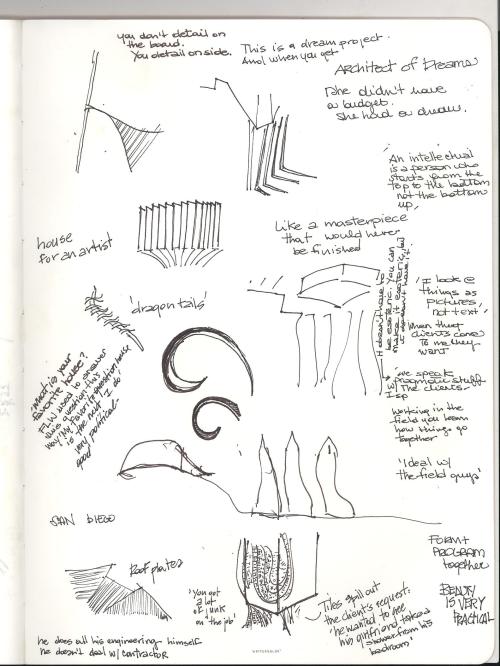 you don't detail on
the board.
You detail on side.
This is a dream project.
And when you get
Architect of Dreams
She didn't have
a budget.
She had a dream.
"An intellectual
is a person who
starts from the
top to the bottom
not the bottom
up"
house
for an artist
Like a masterpiece
that would never
be finished
'dragon tails'
It doesn't have to
be esoteric. You can
make it esoteric, but
it doesn't have it.
'I look @
things as
pictures,
not text'
When that
clients come
To me they
want
'we speak
pragmatic stuff
w/ The clients
What is your
favorite house?
FLW used to answer
this question this
way: My favorite house
is the next I do
very political
good
Working in the
field you learn
how things go
together
'I deal w/
the field guys'
SAN DIEGO
Roof plates
'You got
a lot
of junk
on the job
Tiles spill out
the client's request:
'he wanted to see
his girlfriend take a
shower from his
bedroom'
FORM +
PROGRAM
together
BEAUTY
IS VERY
PRACTICAL
he does all his engineering himself
he doesn't deal w/ contractor